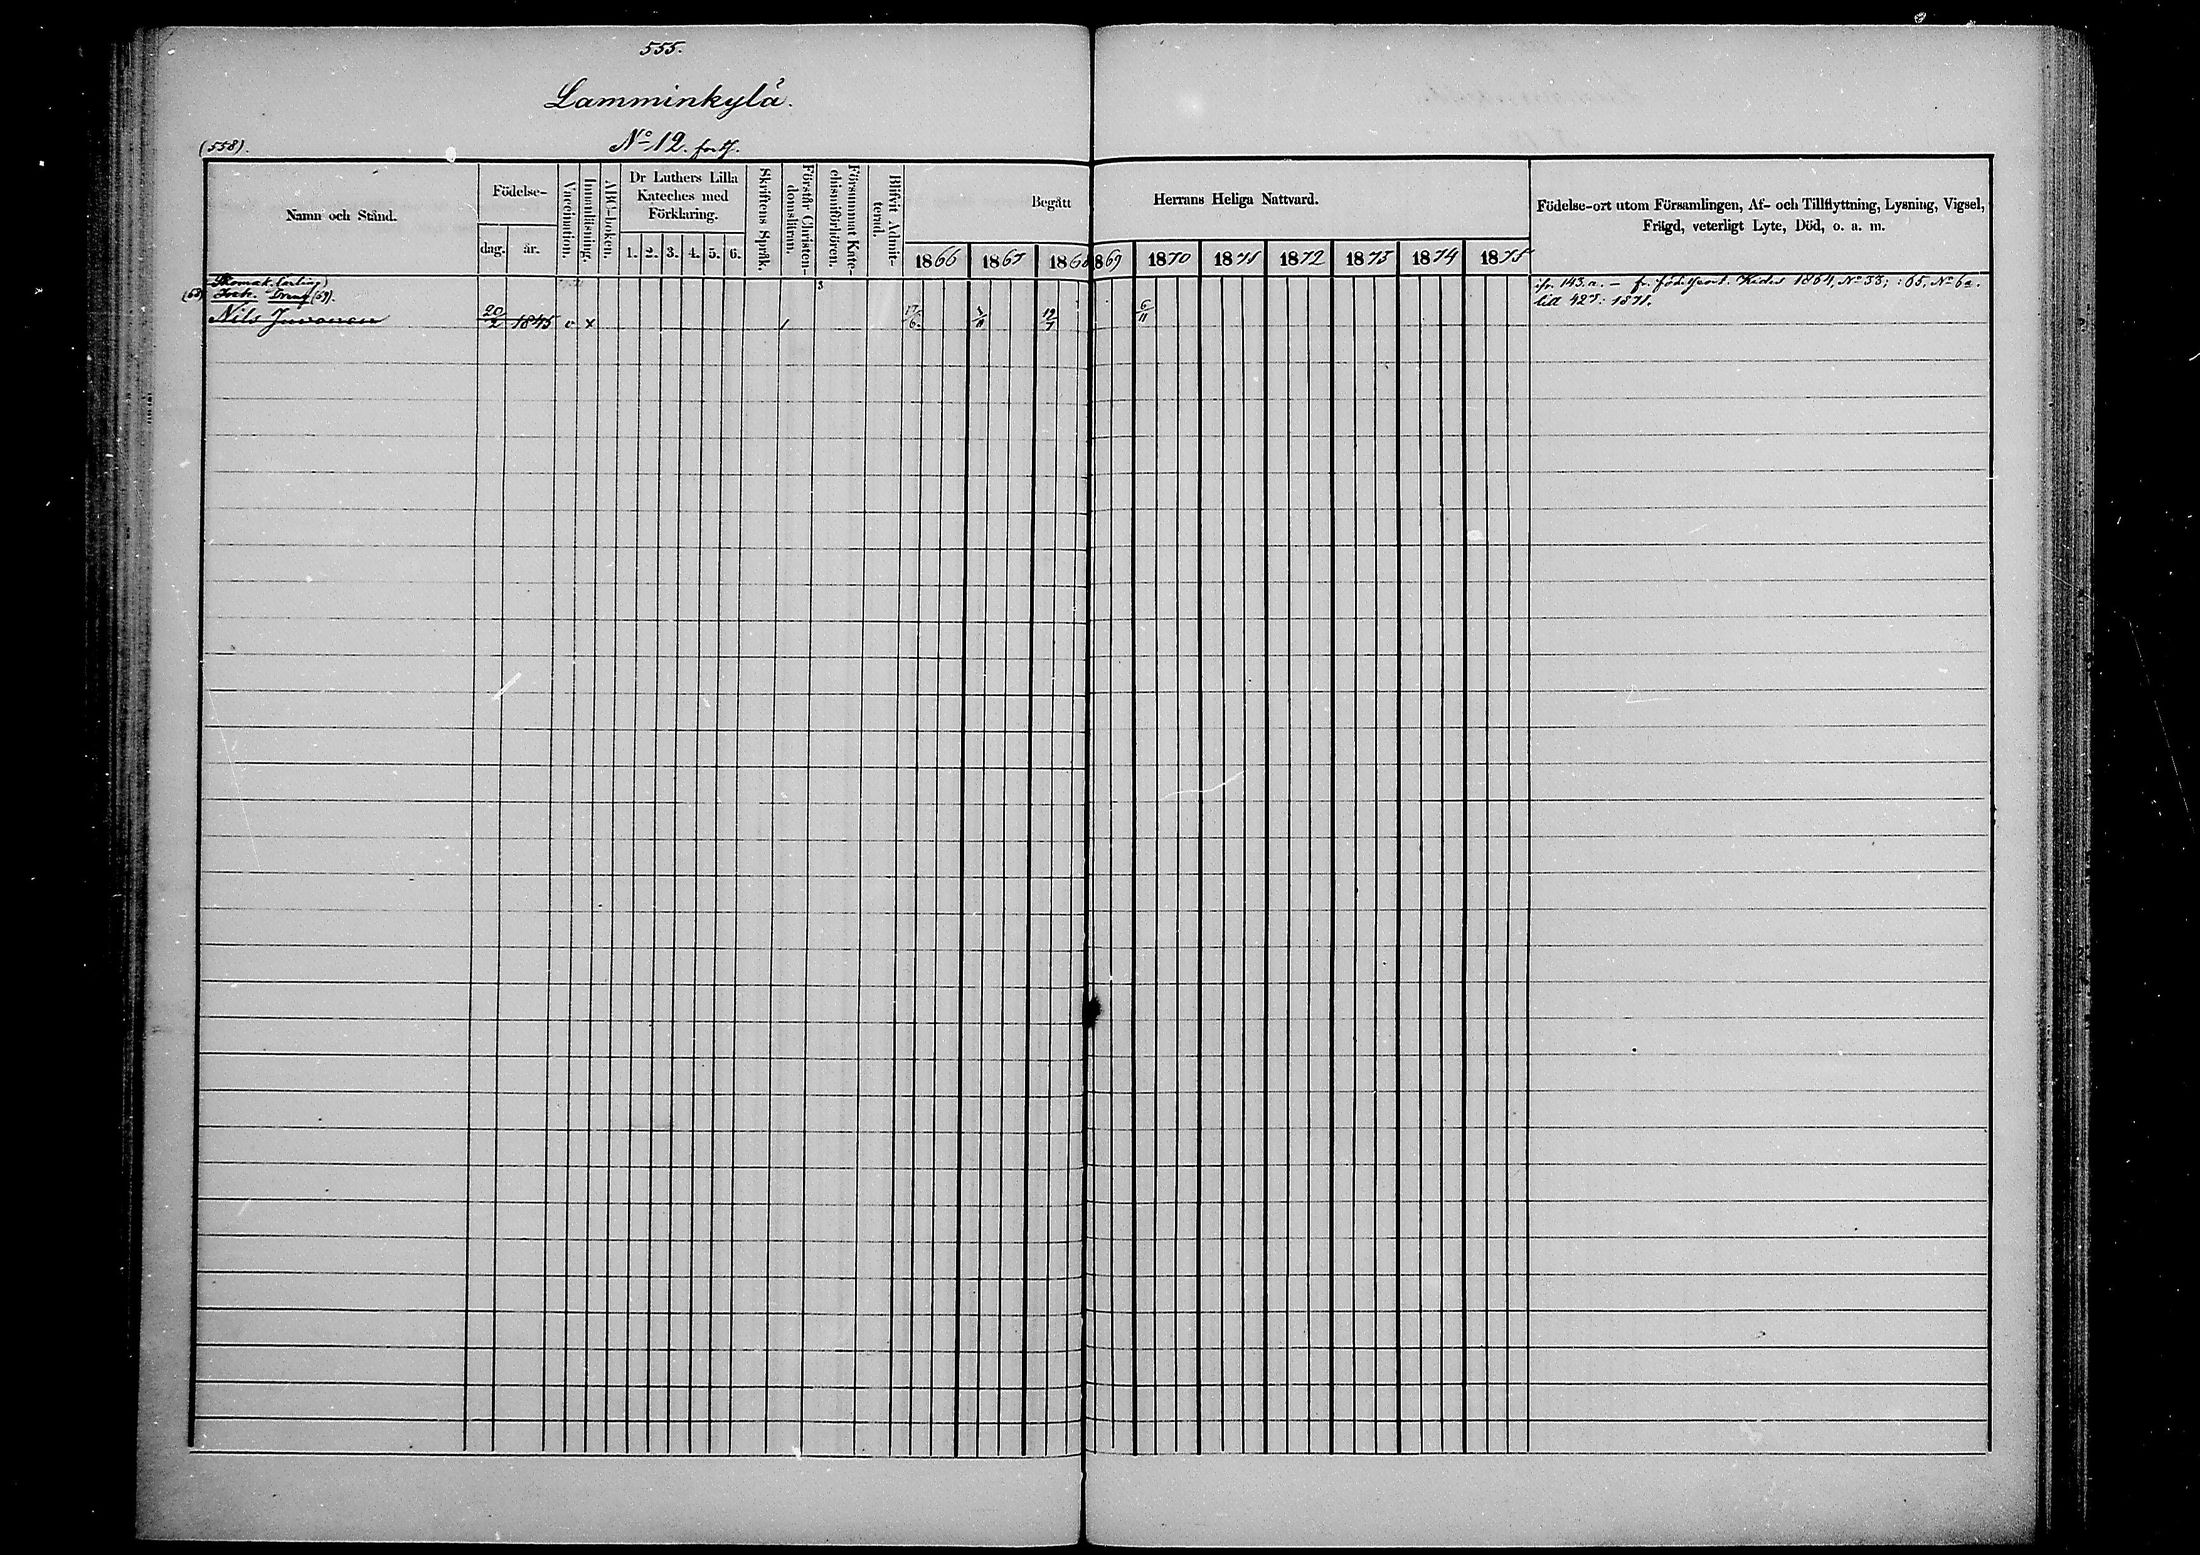 555.
Lamminkylä.
(558).
No 12. forts.
Namn och Stånd.
Födelse-
dag. år.
Vaccination.
Innanläsning.
ABC-boken.
Dr Luthers Lilla
Kateches med
Förklaring.
1. 2. 3. 4. 5. 6.
Skriftens Språk.
Förstår Christen-
domsläran.
Försummat Kate-
chismiförhören.
Blifvit Admit-
terad.
Begått Herrans Heliga Nattvard.
1866 1867 1868 1869 1870 1871 1872 1873 1874 1875
Födelse-ort utom Församlingen, Af- och Tillflyttning, Lysning, Vigsel,
Frägd, veterligt Lyte, Död, o. a. m.
143.a. – fr. Kides 1864, No 33; :65, No 6a.
till 427: 1871.
(68) Dreng (69).
Nils Juvonen 20/2 1845 v x / 17/6 19/7 6/11